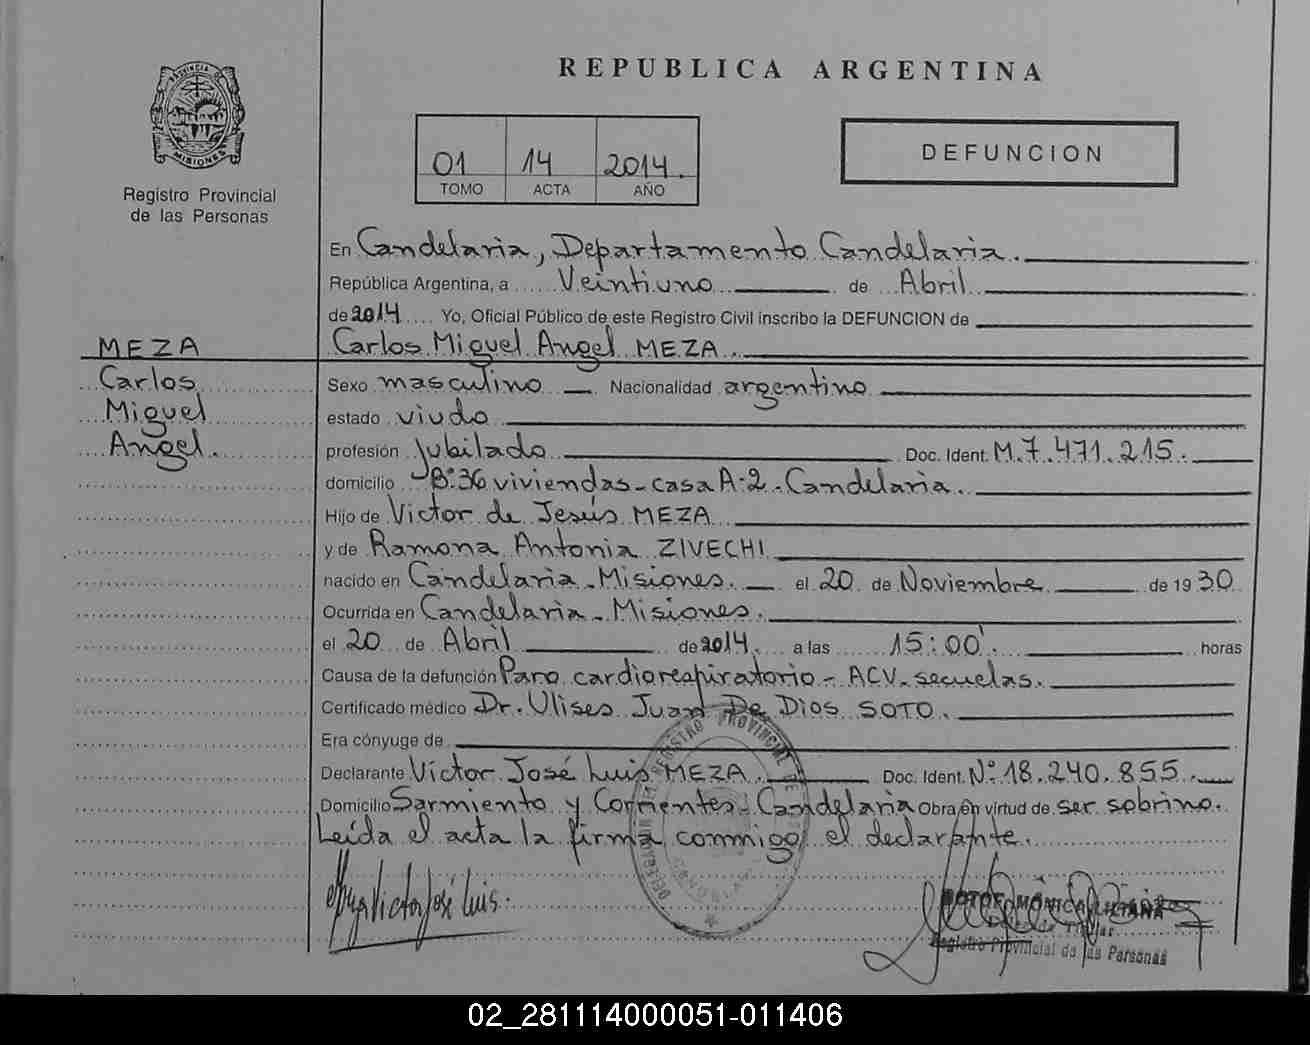 REPUBLICA ARGENTINA
PROVINCIA DE
MISIONES
Registro Provincial
de las Personas
01 14 2014.
TOMO ACTA AÑO
DEFUNCION
En Candelaria, Departamento Candelaria.
República Argentina, a Veintiuno de Abril
de 2014 Yo, Oficial Público de este Registro Civil inscribo la DEFUNCION de
MEZA
Carlos
Miguel
Angel.
Carlos Miguel Angel MEZA.
Sexo masculino Nacionalidad argentino
estado viudo
profesión Jubilado Doc. Ident. M.7.471.215.
domicilio B:36 viviendas-casa A:2-Candelaria.
Hijo de Victor de Jesús MEZA
y de Ramona Antonia ZIVECHI
nacido en Candelaria-Misiones. el 20 de Noviembre de 1930
Ocurrida en Candelaria-Misiones.
el 20 de Abril de 2014 a las 15:00' horas
Causa de la defunción Paro cardiorespiratorio-ACV-secuelas.
Certificado médico Dr. Ulises Juan De Dios SOTO.
Era cónyuge de
Declarante Víctor José Luis MEZA. Doc. Ident. N° 18.240.855.
Domicilio Sarmiento y Corrientes-Candelaria Obra en virtud de ser sobrino.
Leída el acta la firma conmigo el declarante.
Victor José Luis.
MONICA LILIANA
Registro Provincial de las Personas
02_281114000051-011406